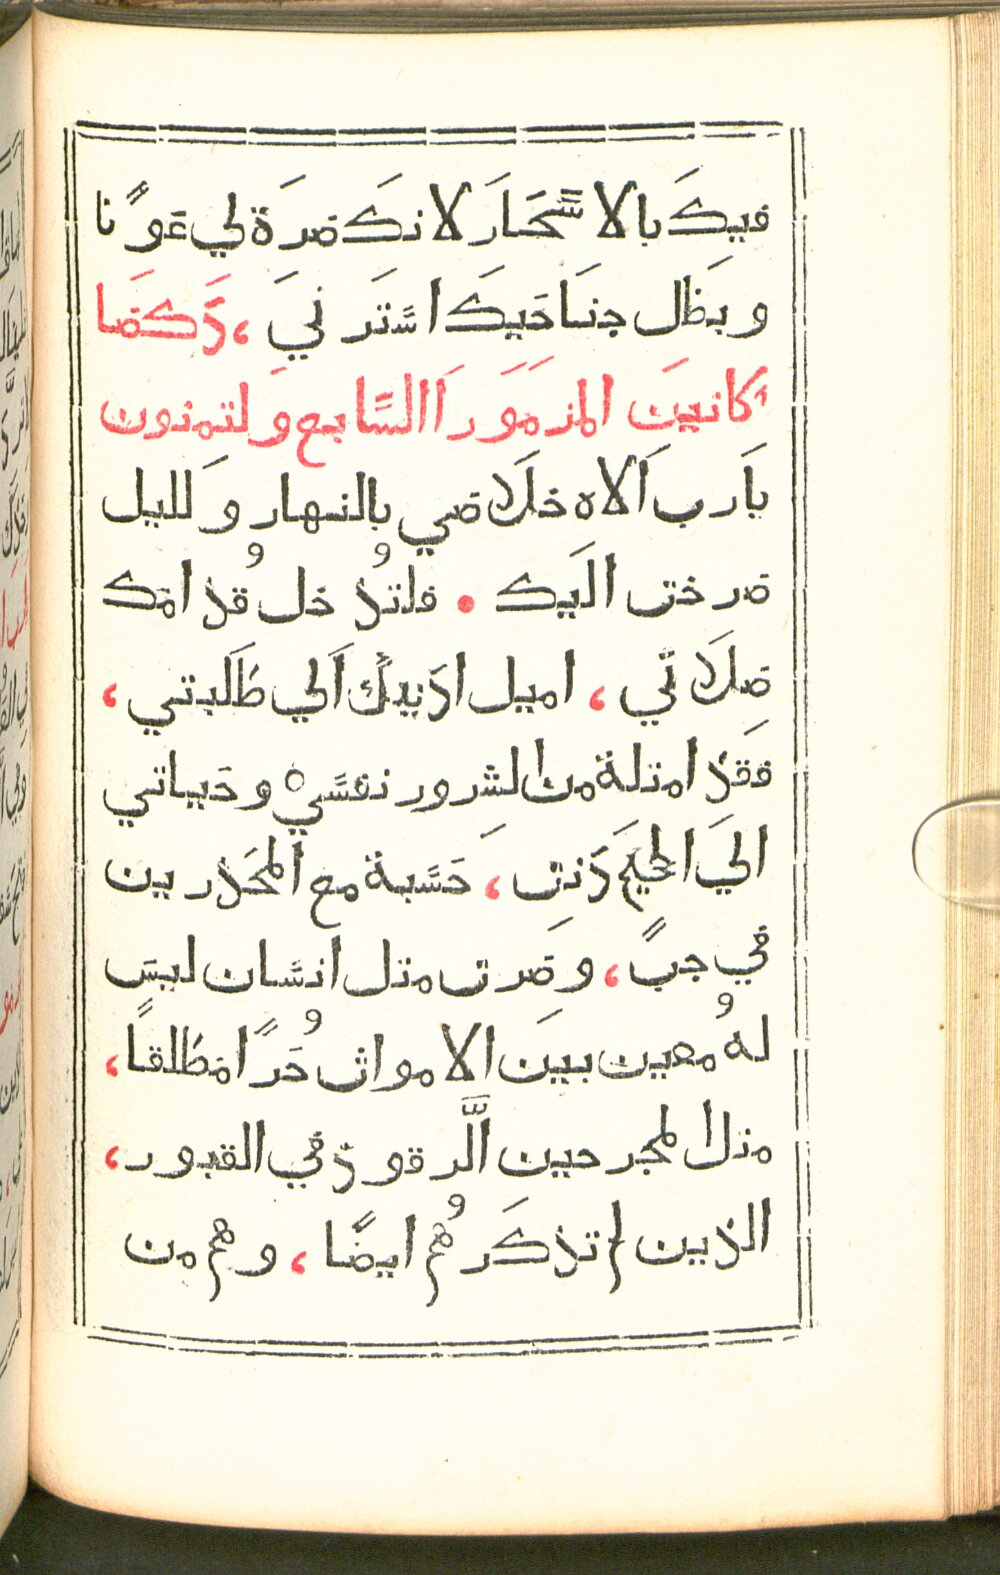 فيكَ بالاسَّحَارَ لانكَ صرَة لي عَوَنًا
وبَظل جنَاحَيكَ استَرَ نيَ ، دَكصَا
كانيَن المزمَوَرَ االسَّابع وَ لتمنون
يَارب اَلاه خلَاصي بالنهار وَ لليل
صرختَ اليك • فلتدُخل قُدامك
صلَاتي ، اميل ادَنيكَ اَلي طَلَبتي ،
فقدَ امتلة من الشرور نفسَي وحَياتي
اليَ الجحيمَ دَنتَ ، حَسَبة مع المحَدرين
في جبً ، وصَرتَ متل انسَان ليسَ
لهُ معين بيَنَ الامواتَ حُرًا مَطلقًا ،
متل المجرحين الَّرقودَ في القبور ،
الذين لم تذكَرهُم ايضًا ، وهم من